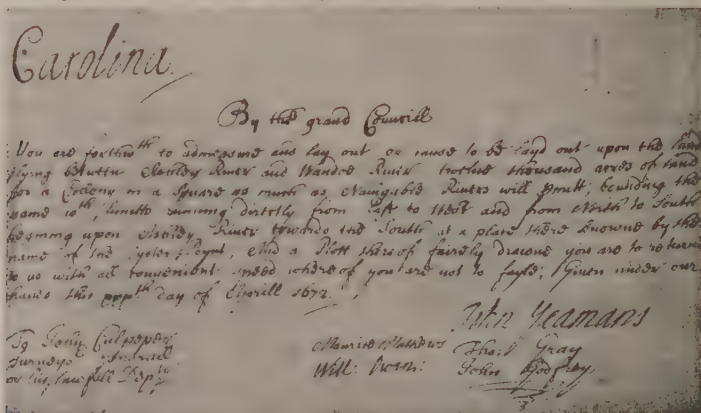 Carolina
By the grand Councill
You are forthwth to admeasure and lay out or cause to be layd out upon the land
lying betwen Ashley River and Wandoe River twelve thousand acres of land
for a Colony in a square as much as Navigable Rivers will pmitt, bounding the
same wth lines running directly from East to West and from North to South
begining upon Ashley River towards the South at a place there knowne by the
name of the Oyster Poynt, And a Plott thereof fairely drawne you are to returne
to us with all convenient speed whereof you are not to fayle; Given under our
hands this day of Aprill 1672
John Yeamans
To John Culpeper
Maurice Mathews
Tho: Gray
Surveyor Generall
Will: Owen:
John Godfrey
or his lawfull Depty